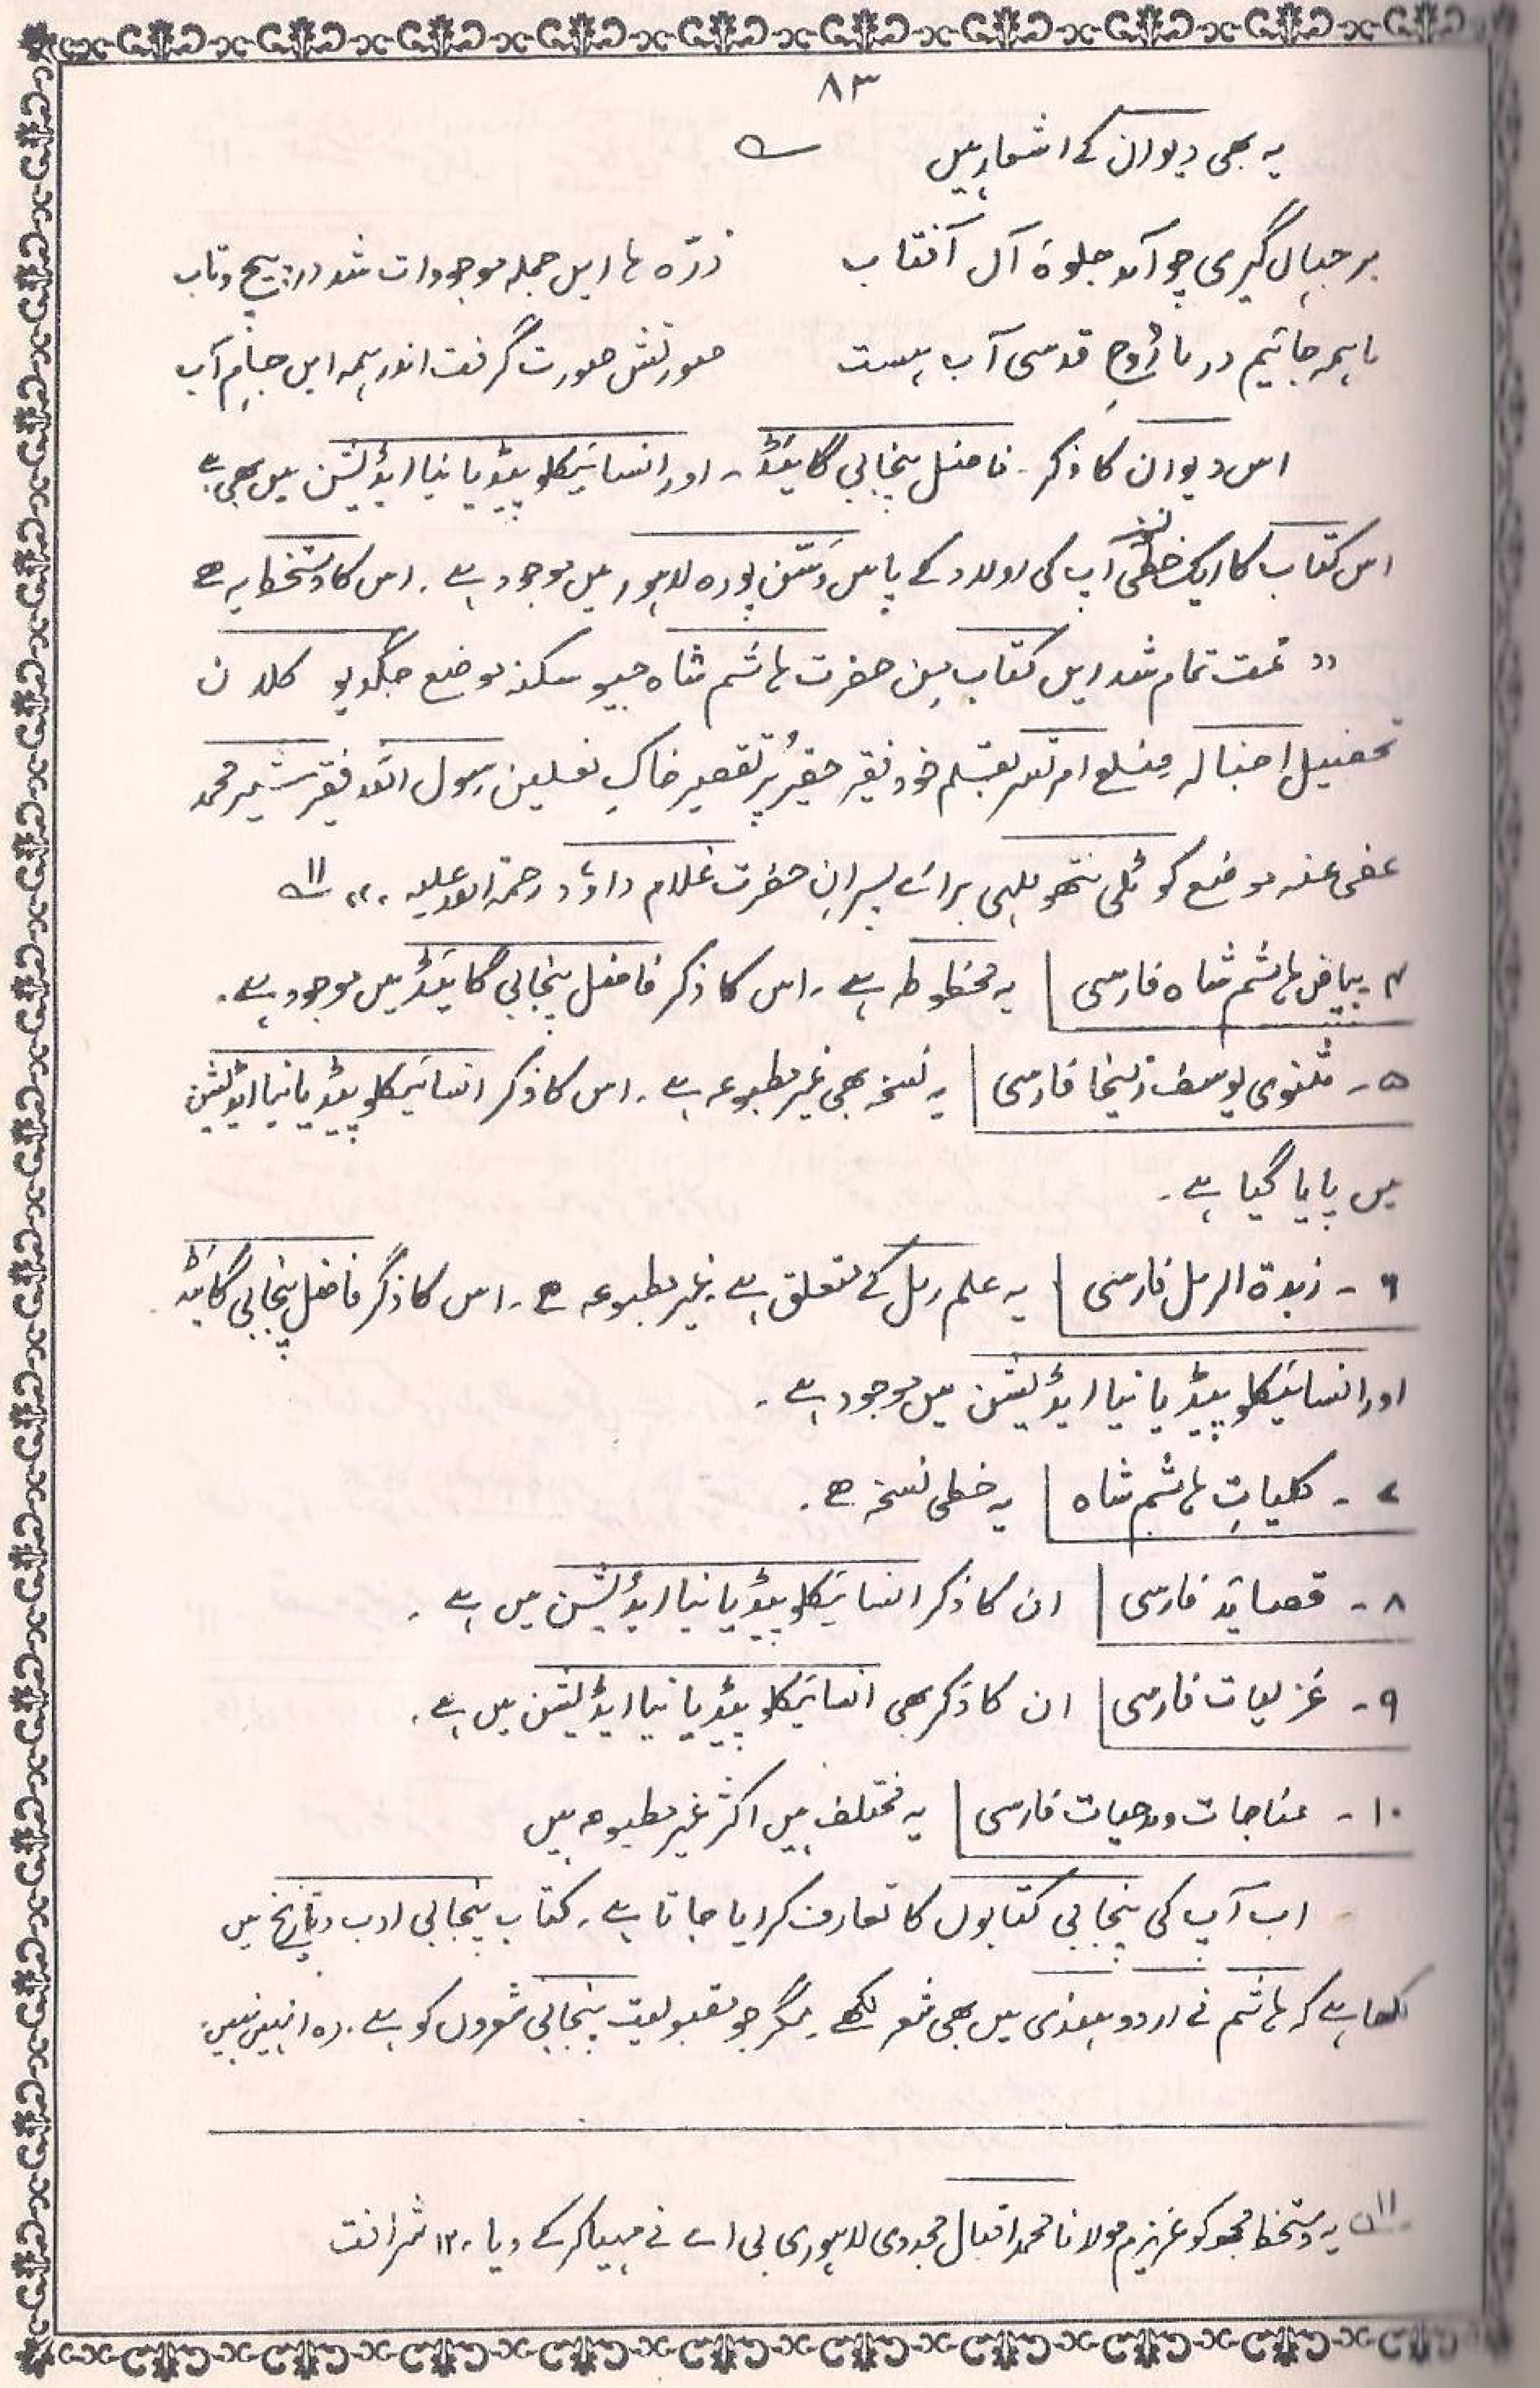 ۸۳
یہ بھی دیوان کے اشعار ہیں
بر جہاں گیری چو آمد جلوۂ آں آفتاب ذرّہ ہا ایں جملہ موجودات شد در پیچ و تاب
با ہمہ جائیم در ما روحِ قدسی آب ہست صورتش صورت گرفت اندر ہمہ ایں جام آب
اس دیوان کا ذکر ۔ فاضل پنجابی گائیڈ ۔ اور انسائیکلو پیڈیا نیا ایڈیشن میں بھی ہے
اس کتاب کا ایک خطی نسخہ آپ کی اولاد کے پاس وسّن پورہ لاہور میں موجود ہے ۔ اس کا دستخط یہ ہے
" تمت تمام شد ایں کتاب من حضرت ہاشم شاہ جیو سکنہ موضع جگدیو کلاں
تحصیل اجنالہ ضلع امرتسر بقلم خود فقیر حقیر پُر تقصیر خاکِ نعلین رسول اللہ فقیر شیر محمد
عفی عنہ موضع کوٹلی نتھو ملہی برائے پسرانِ حضرت غلام داؤد رحمۃ اللہ علیہ ۔" ۱۱
۴ ۔ بیاض ہاشم شاہ فارسی یہ مخطوطہ ہے ۔ اس کا ذکر فاضل پنجابی گائیڈ میں موجود ہے ۔
۵ ۔ مثنوی یوسف زلیخا فارسی یہ نسخہ بھی غیر مطبوعہ ہے ۔ اس کا ذکر انسائیکلو پیڈیا نیا ایڈیشن
میں پایا گیا ہے ۔
۶ ۔ زبدۃ الرمل فارسی یہ علم رمل کے متعلق ہے ۔ غیر مطبوعہ ہے ۔ اس کا ذکر فاضل پنجابی گائیڈ
اور انسائیکلو پیڈیا نیا ایڈیشن میں موجود ہے ۔
۷ ۔ کلیاتِ ہاشم شاہ یہ خطی نسخہ ہے ۔
۸ ۔ قصائد فارسی ان کا ذکر انسائیکلو پیڈیا نیا ایڈیشن میں ہے ۔
۹ ۔ غزلیات فارسی ان کا ذکر بھی انسائیکلو پیڈیا نیا ایڈیشن میں ہے ۔
۱۰ ۔ مناجات و مدحیات فارسی یہ مختلف ہیں اکثر غیر مطبوعہ ہیں
اب آپ کی پنجابی کتابوں کا تعارف کرایا جاتا ہے ۔ کتاب پنجابی ادب و تاریخ میں
لکھا ہے کہ ہاشم نے اردو ہندی میں بھی شعر لکھے ۔ مگر جو مقبولیت پنجابی شعروں کو ہے ۔ وہ انہیں نہیں
۱۱ یہ دستخط مجھ کو عزیزم مولانا محمد اقبال مجددی لاہوری بی اے نے مہیا کر کے دیا ۔ ۱۲ شرافت